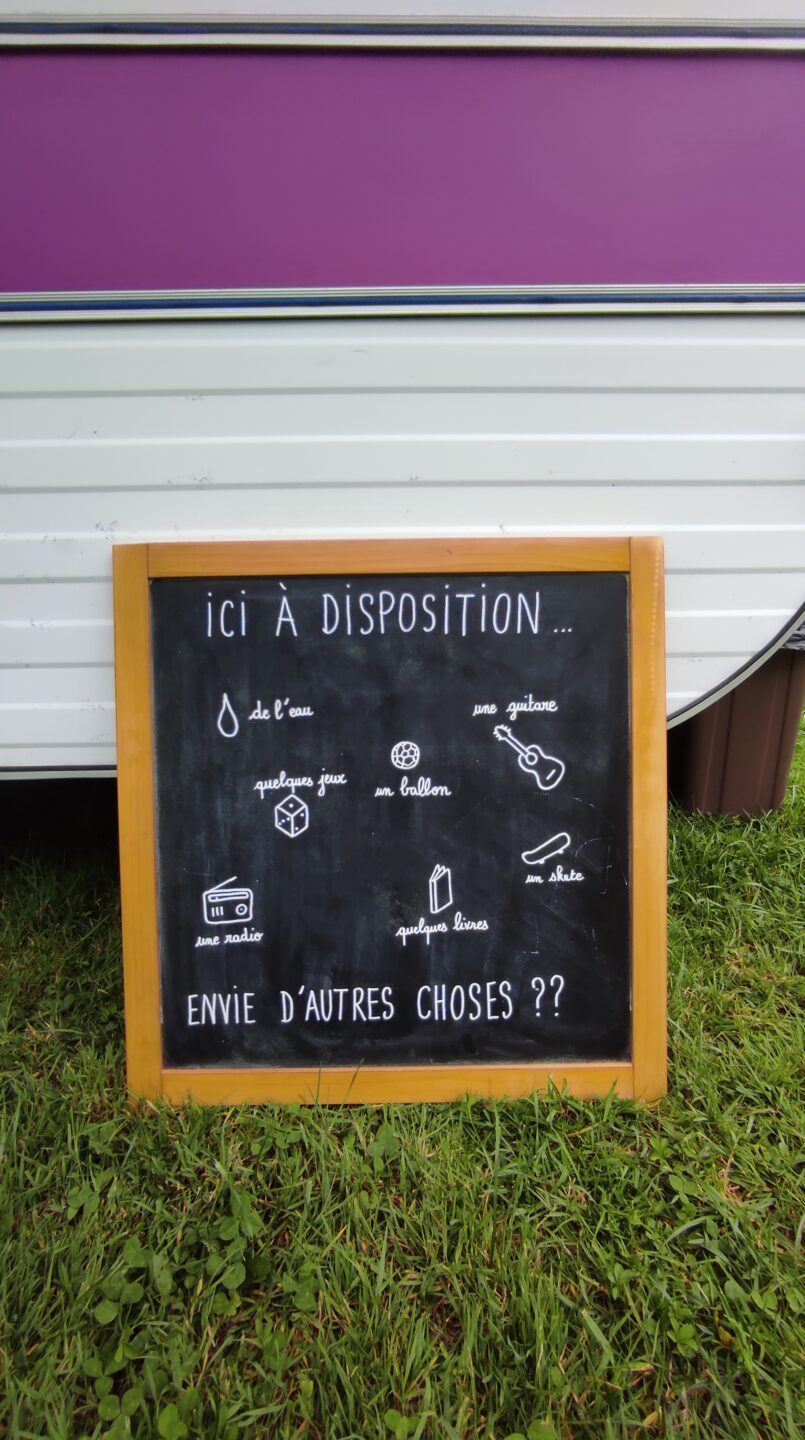 ici À DiSPOSiTiON...
de l'eau
une guitare
quelques jeux
un ballon
un skate
une radio
quelques livres
ENViE D'AUTRES CHOSES ??